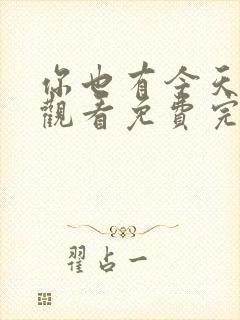 你也有今天
觀看免費完
翟占一